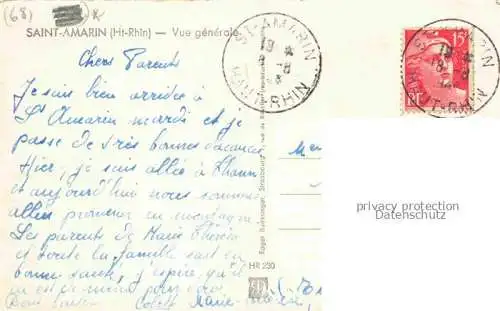 (68)
SAINT-AMARIN (Ht-Rhin) — Vue générale
ST-AMARIN
19 *
8 -8
HAUT-RHIN
15F
RF
Chers Parents
Je suis bien arrivée à
St Amarin mardi et je
passe de très bonnes vacances
Hier, je suis allée à Thann
et aujourd'hui nous sommes
allés promener en montagne
Les parents de Marie Thérèse
et toute la famille sont en
bonne santé, j'espère qu'il
en est de même pour vous
Colette Marie-Thérèse
HR 230
privacy protection
Datenschutz